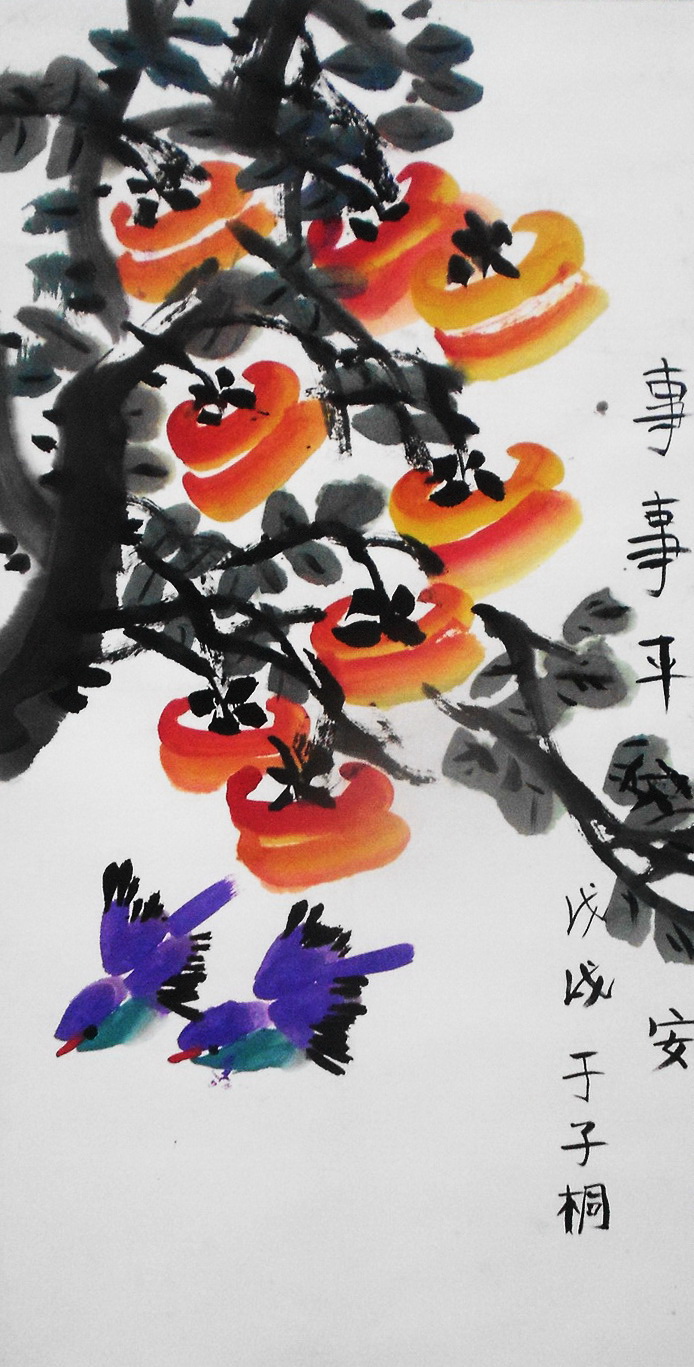 事事平安
戊戌于子桐